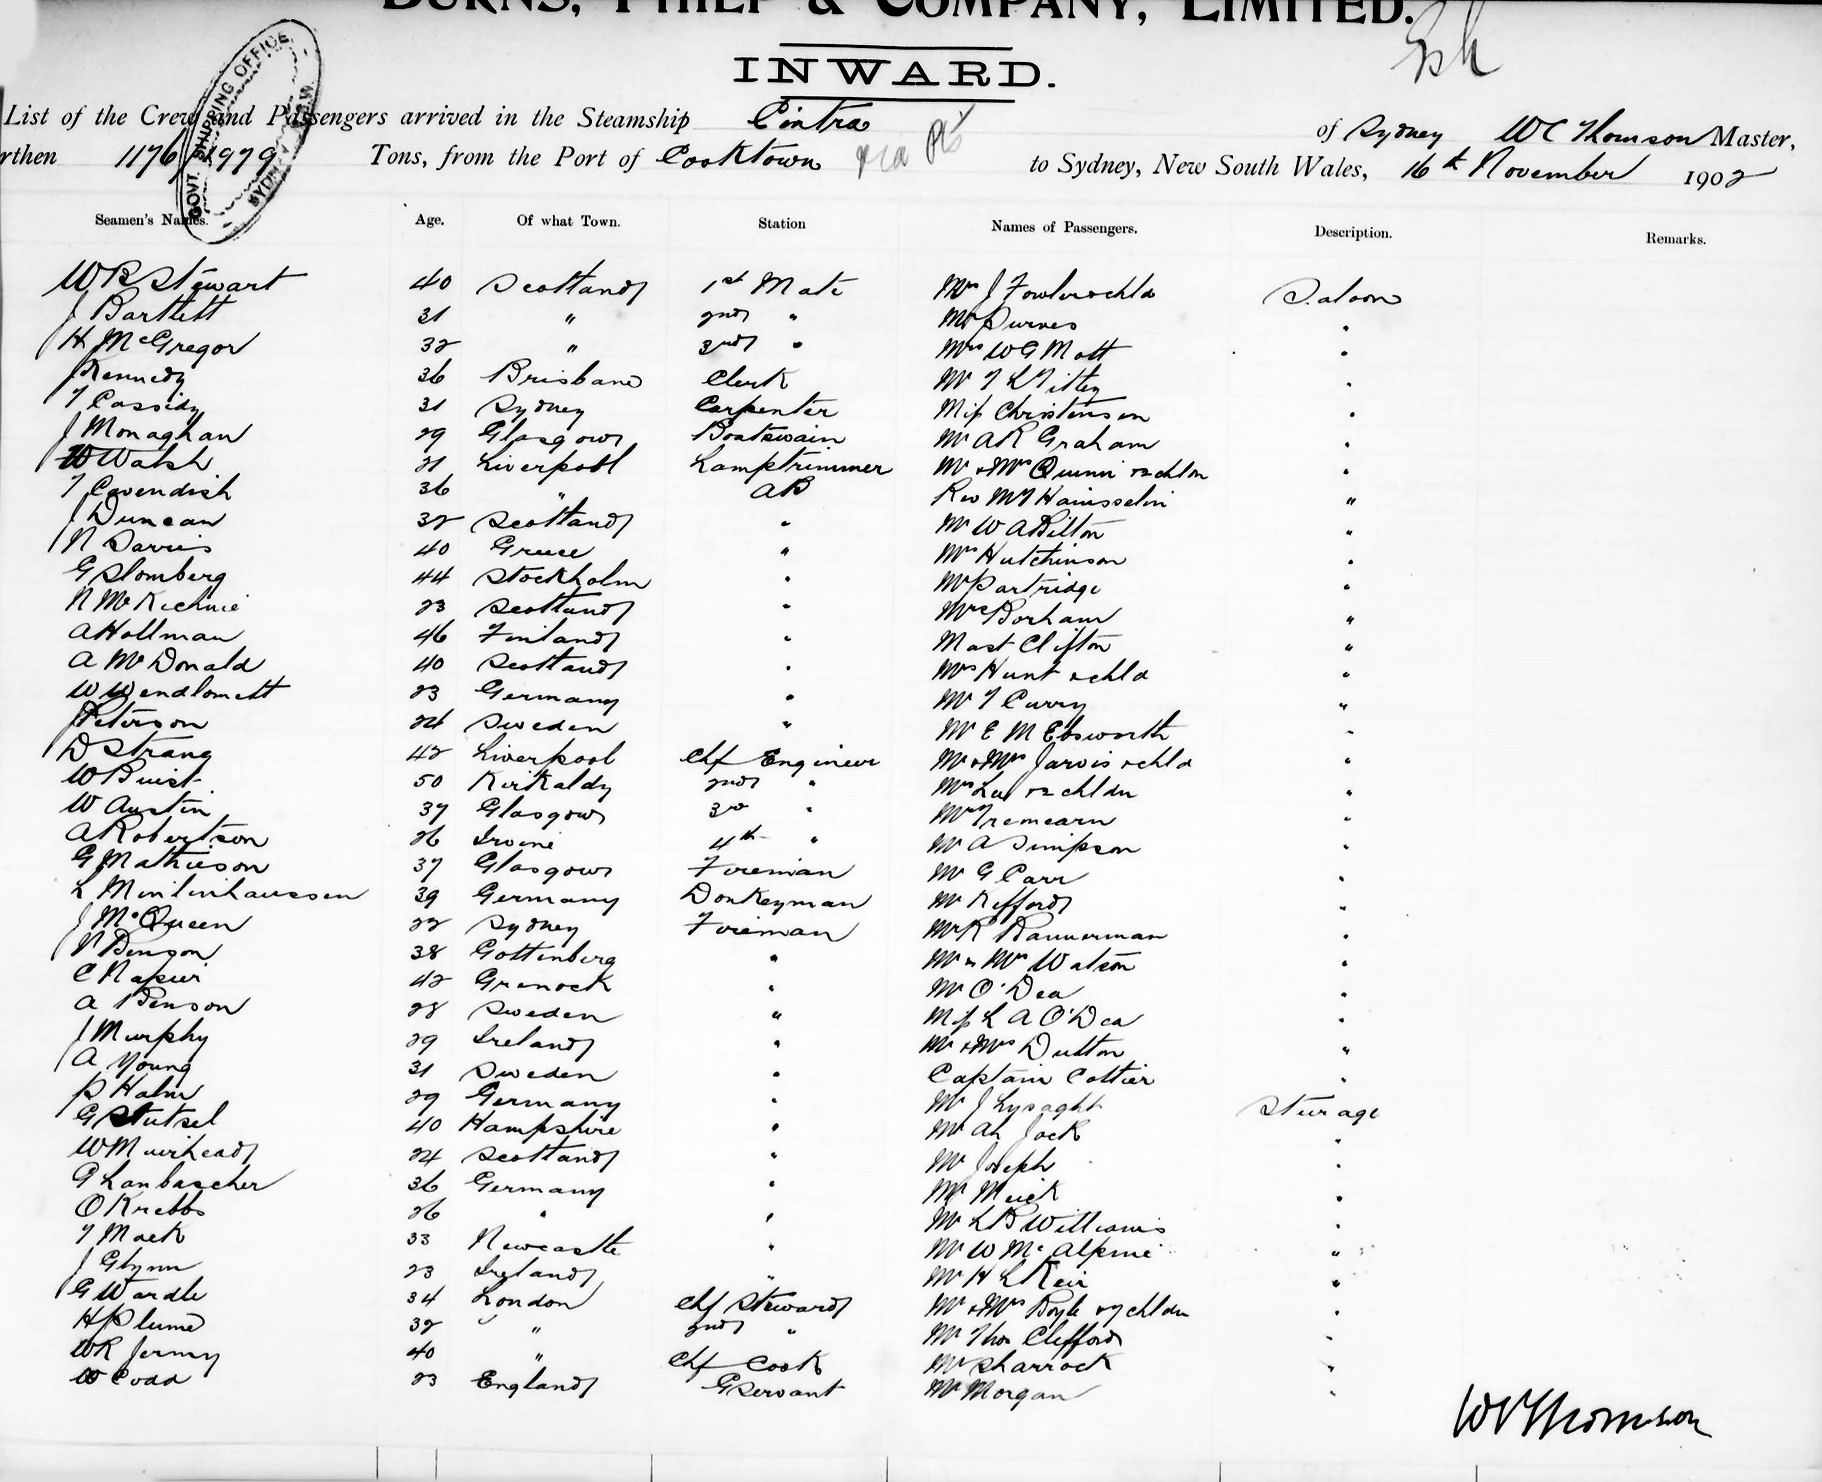 BURNS, PHILP & COMPANY, LIMITED.
INWARD.
GOVT. SHIPPING OFFICE
SYDNEY N.S.W.
List of the Crew and Passengers arrived in the Steamship Cintra of Sydney W C Thomson Master,
rthen 1176/1979 Tons, from the Port of Cooktown to Sydney, New South Wales, 16th November 1902
Seamen's Names. Age. Of what Town. Station Names of Passengers. Description. Remarks.
W B Stewart 40 Scotland 1st Mate Mrs J Fowler & chld Saloon
J Bartlett 31 " 2nd " Mr Purves "
H McGregor 32 " 3rd " Mrs W G Mott "
J Kennedy 36 Brisbane Clerk Mr T L "
T Cassidy 31 Sydney Carpenter Miss Christensen "
J Monaghan 29 Glasgow Boatswain Mr A R Graham "
W Walsh 21 Liverpool Lamptrimmer Mr & Mrs Quinn & 2 chldn "
T Cavendish 36 " AB Rev Mr "
J Duncan 32 Scotland " Mr W A Bilton "
N Darris 40 Greece " Mrs Hutchinson "
G Slomberg 44 Stockholm " Mr Partridge "
N McKechnie 23 Scotland " Mrs Borham "
A Hollman 46 Finland " Mast Clifton "
A McDonald 40 Scotland " Mrs Hunt & chld "
W Wendlomett 23 Germany " Mr T Curry "
J Peterson 24 Sweden " Mr E M Ebsworth "
D Strang 42 Liverpool Chf Engineer Mr & Mrs Jarvis & chld "
W Buist 50 Kirkaldy 2nd " Mrs Lee & 2 chldn "
W Austin 37 Glasgow 3rd " Mr Tremearn "
A Robertson 26 Irvine 4th " Mr A Simpson "
G Mathieson 37 Glasgow Fireman Mr G Carr "
L Mintinhaussen 39 Germany Donkeyman Mr Kifford "
J McQueen 22 Sydney Fireman Mr R Bannerman "
V Benson 38 Gottenberg " Mr & Mrs Watson "
C Napier 42 Grenock " Mr O'Dea "
A Benson 28 Sweden " Miss L A O'Dea "
J Murphy 29 Ireland " Mr & Mrs Dutton "
A Young 31 Sweden " Captain Cottier "
P Halm 29 Germany " Mr J Lysaght Sturage
G Stutsel 40 Hampshire " Mr Ah Jack "
W Muirhead 24 Scotland " Mr Joseph "
G Lanbascher 36 Germany " Mr Meick "
O Krebbs 26 " " Mr L B Williams "
T Mack 33 Newcastle " Mr W McAlpine "
J Glynn 23 Ireland " Mr H L Keir "
G Wardle 34 London Chf Steward Mr & Mrs Boyle & 7 chldn "
H Plume 32 " 2nd " Mr Thos Clifford "
W R Jermy 40 " Chf Cook Mr Sharrock "
W Codd 23 England G Servant Mr Morgan "
W C Thomson